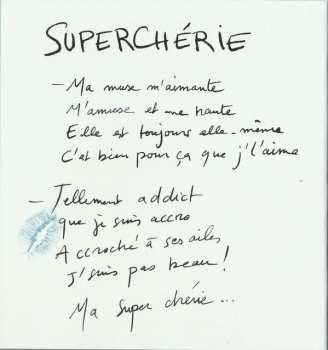 SUPERCHÉRIE
- Ma muse m'aimante
M'amuse et me hante
Elle est toujours elle-même
C'est bien pour ça que j'l'aime
- Tellement addict
que je suis accro
Accroché à ses ailes
J'suis pas beau !
Ma super chérie ...